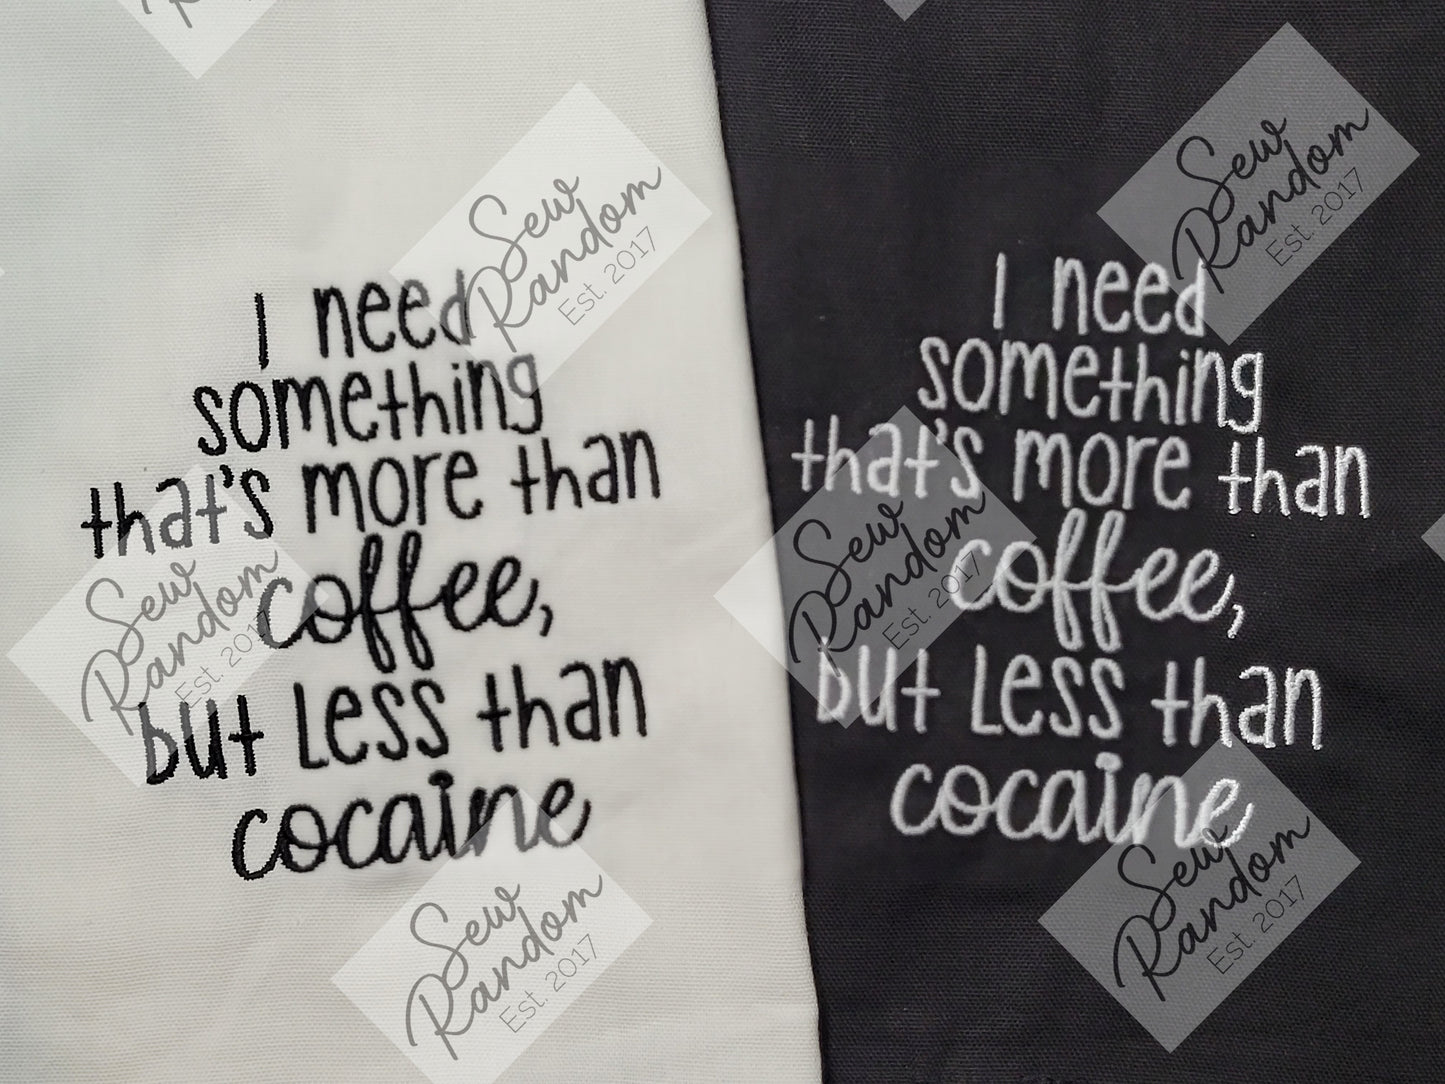 I need
something
that's more than
coffee,
but Less than
cocaine
I need
something
that's more than
coffee,
but Less than
cocaine
Sew
Random
Est. 2017
Sew
Random
Est. 2017
Sew
Random
Est. 2017
Sew
Random
Est. 2017
Sew
Random
Est. 2017
Sew
Random
Est. 2017